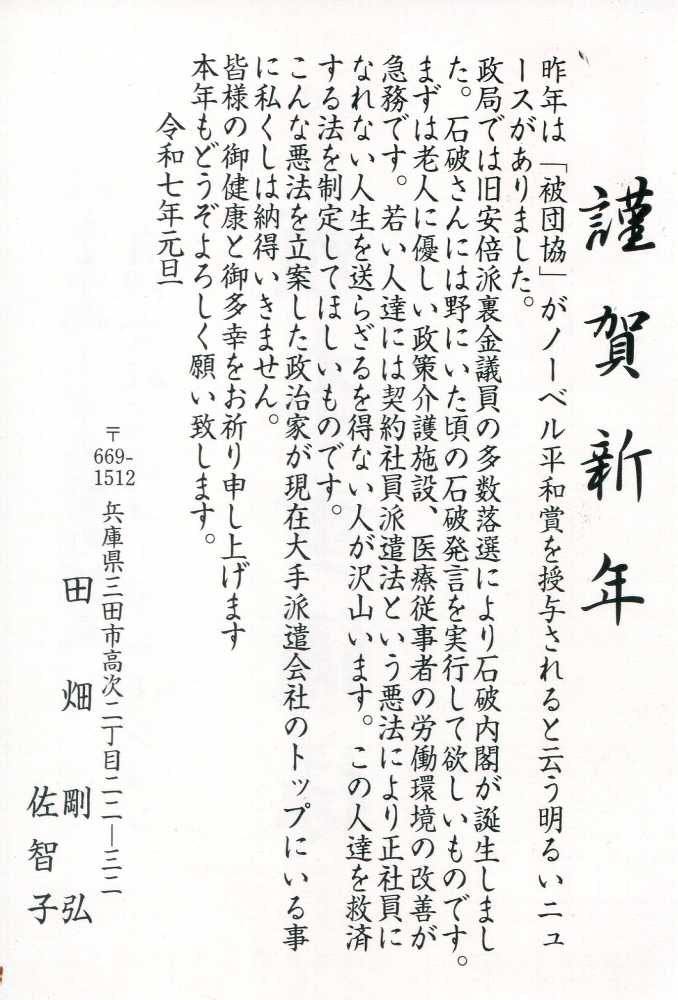 謹賀新年
昨年は「被団協」がノーベル平和賞を授与されると云う明るいニュ
ースがありました。
政局では旧安倍派裏金議員の多数落選により石破内閣が誕生しまし
た。石破さんには野にいた頃の石破発言を実行して欲しいものです。
まずは老人に優しい政策介護施設、医療従事者の労働環境の改善が
急務です。若い人達には契約社員派遣法という悪法により正社員に
なれない人生を送らざるを得ない人が沢山います。この人達を救済
する法を制定してほしいものです。
こんな悪法を立案した政治家が現在大手派遣会社のトップにいる事
に私くしは納得いきません。
皆様の御健康と御多幸をお祈り申し上げます
本年もどうぞよろしく願い致します。
令和七年元旦
〒669-1512 兵庫県三田市高次二丁目二二―三二
田畑 剛弘
佐智子